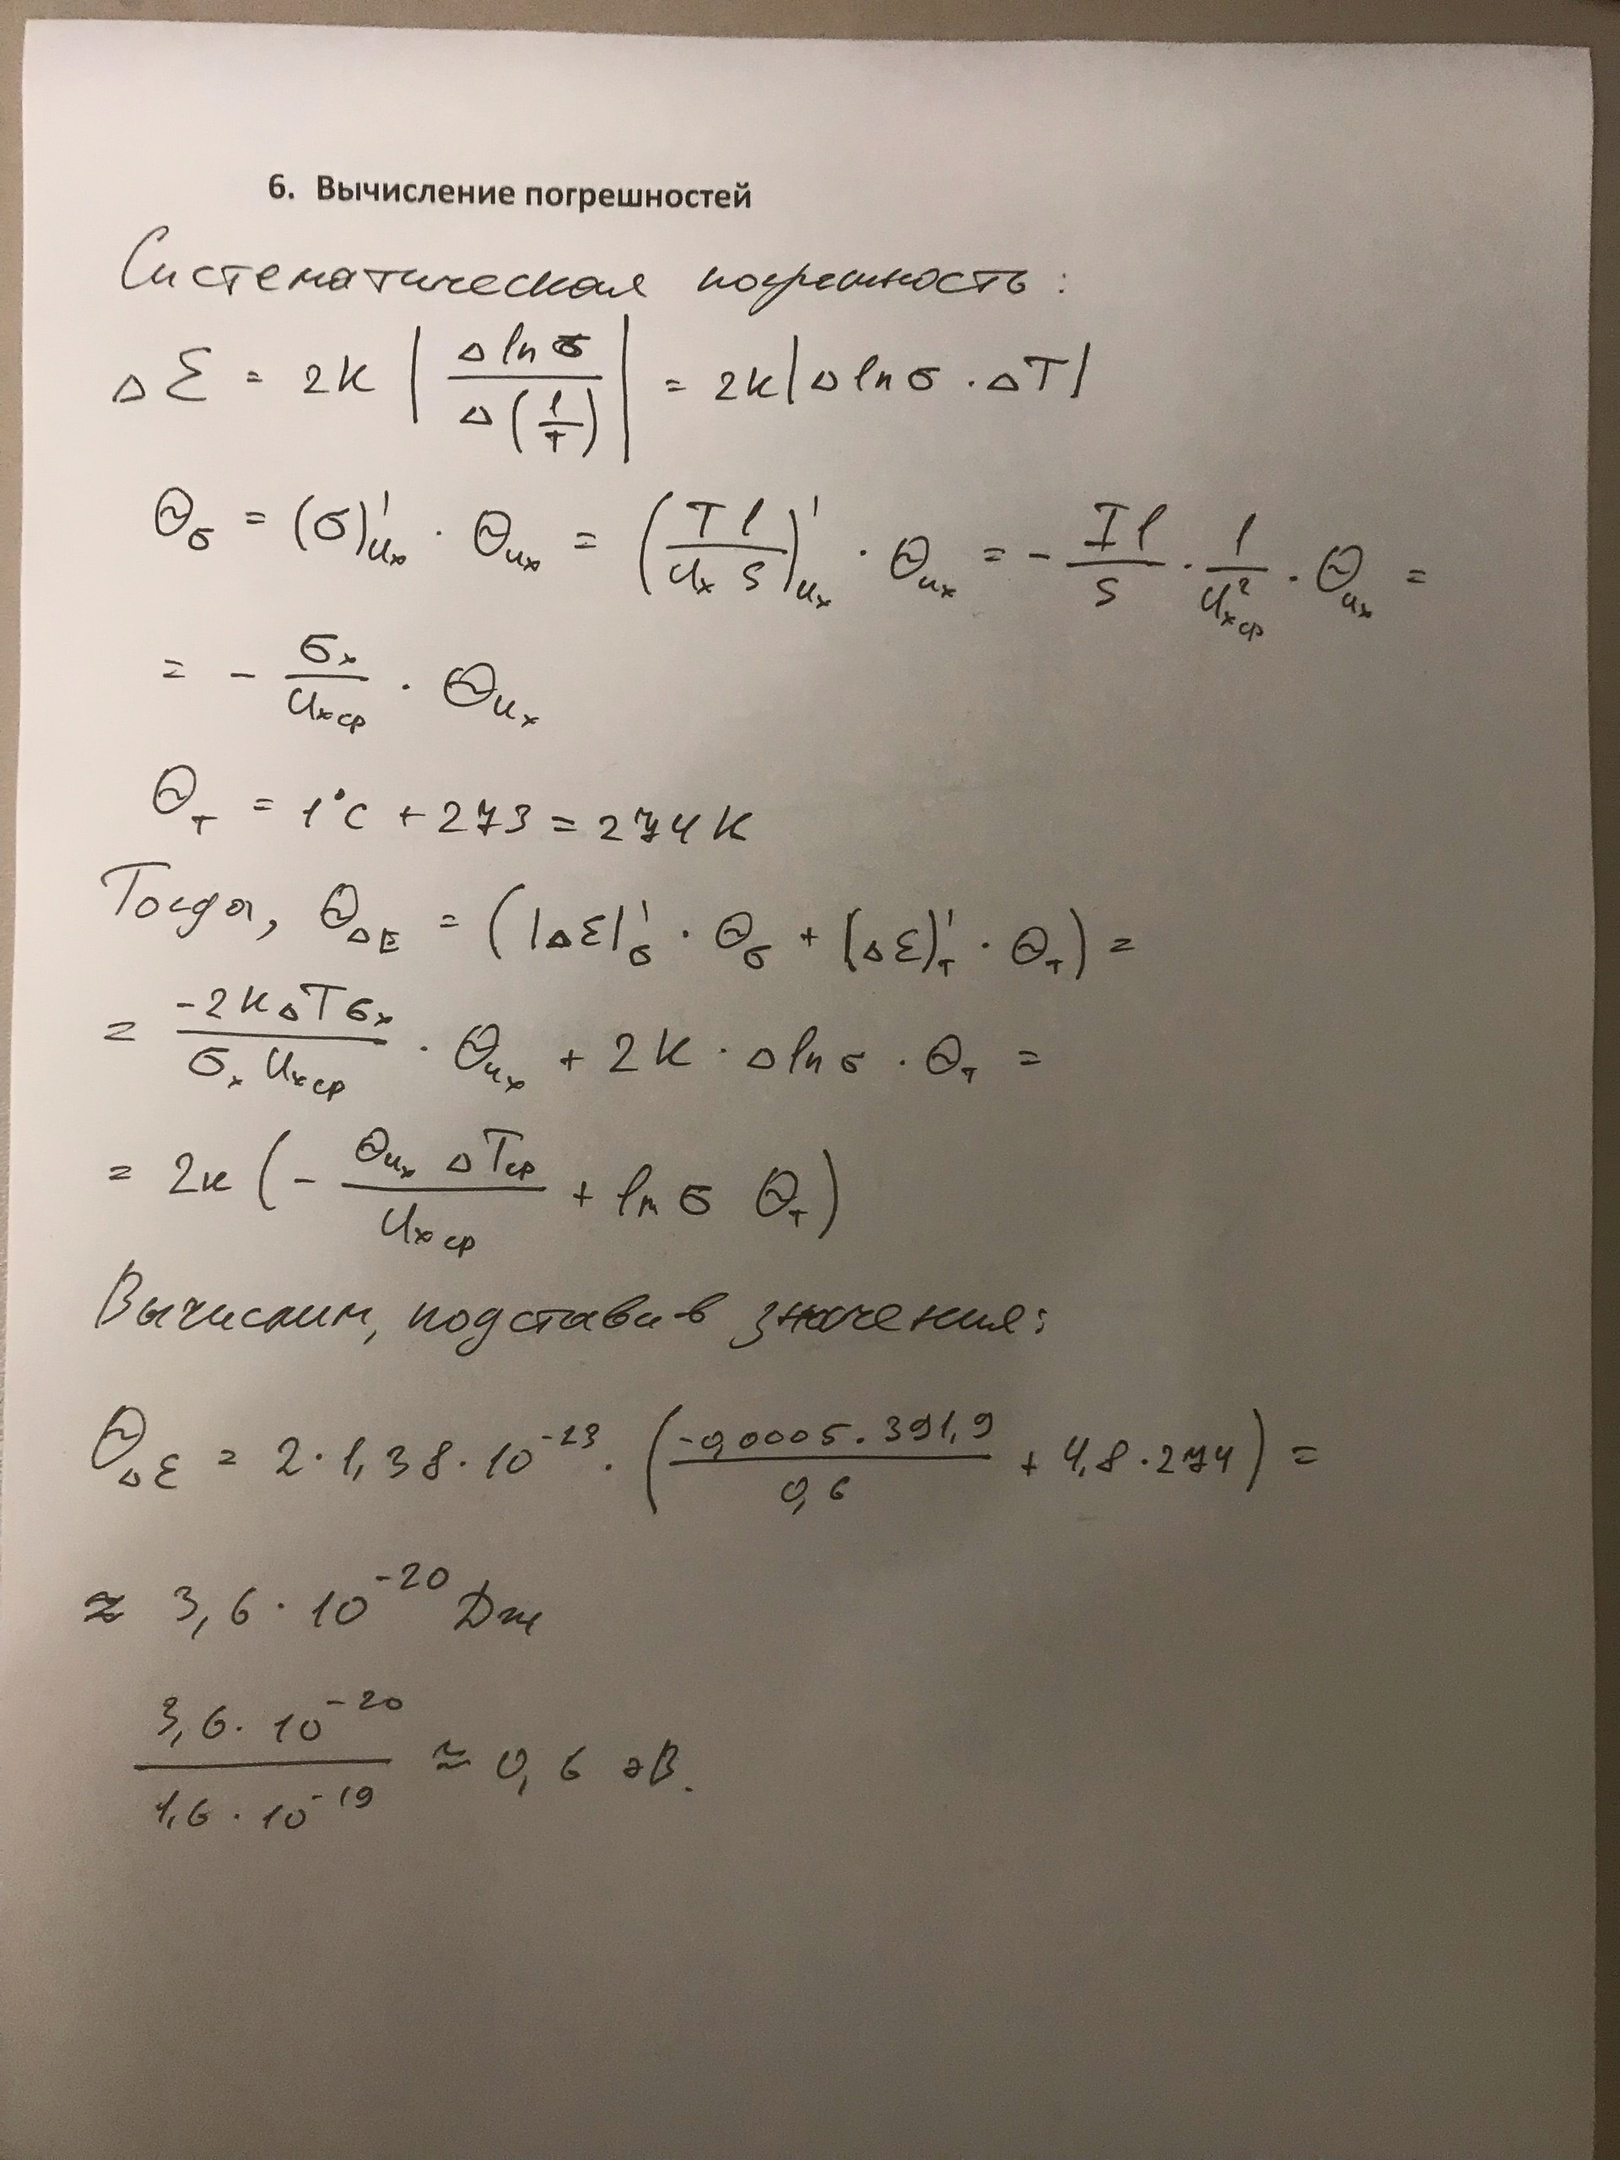 6. Вычисление погрешностей
Систематическая погрешность:
Δ Ɛ = 2k | Δ ln σ / Δ (1/T) | = 2k | Δ ln σ · ΔT |
Θ_σ = (σ)'_Uх · Θ_Uх = (T l / Uх S)'_Uх · Θ_Uх = - I l / S · 1 / U²хср · Θ_Uх =
= - σх / Uхср · Θ_Uх
Θ_т = 1°C + 273 = 274 K
Тогда, Θ_ΔE = (|ΔƐ|'_σ · Θ_σ + (ΔƐ)'_т · Θ_т) =
= -2 k ΔT σх / σх Uхср · Θ_Uх + 2k · Δ ln σ · Θ_т =
= 2k (- Θ_Uх ΔTср / Uхср + ln σ Θ_т)
Вычислим, подставив значения:
Θ_ΔƐ = 2 · 1,38 · 10^-23 · (-0,0005 · 391,9 / 0,6 + 4,8 · 274) =
≈ 3,6 · 10^-20 Дж
3,6 · 10^-20 / 1,6 · 10^-19 ≈ 0,6 эВ.